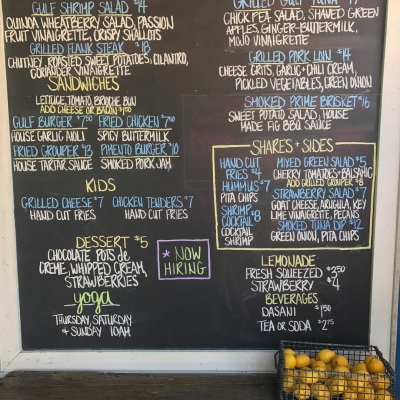 GULF SHRIMP SALAD $14
QUINOA WHEATBERRY SALAD, PASSION
FRUIT VINAIGRETTE, CRISPY SHALLOTS
GRILLED FLANK STEAK $18
CHUTNEY, ROASTED SWEET POTATOES, CILANTRO,
CORIANDER VINAIGRETTE
SANDWICHES
LETTUCE TOMATO BRIOCHE BUN
ADD CHEESE OR BACON $1.50
GULF BURGER $7.50
HOUSE GARLIC AIOLI
FRIED CHICKEN $7.00
SPICY BUTTERMILK
FRIED GROUPER $13
HOUSE TARTAR SAUCE
PIMENTO BURGER $10
SMOKED PORK JAM
KIDS
GRILLED CHEESE $7
HAND CUT FRIES
CHICKEN TENDERS $7
HAND CUT FRIES
DESSERT $5
CHOCOLATE POTS de
CREME, WHIPPED CREAM,
STRAWBERRIES
yoga
THURSDAY, SATURDAY
& SUNDAY 10AM
* NOW
HIRING
GRILLED GULF TUNA
CHICK PEA SALAD, SHAVED GREEN
APPLES, GINGER-BUTTERMILK,
MOJO VINAIGRETTE
GRILLED PORK LOIN $14
CHEESE GRITS, GARLIC + CHILI CREAM,
PICKLED VEGETABLES, GREEN ONION
SMOKED PRIME BRISKET $16
SWEET POTATO SALAD, HOUSE
MADE FIG BBQ SAUCE
SHARES + SIDES
HAND CUT
FRIES $4
HUMMUS $7
PITA CHIPS
SHRIMP
COCKTAIL $8
COCKTAIL
SHRIMP
MIXED GREEN SALAD $5
CHERRY TOMATOES + BALSAMIC
ADD GRILLED GROUPER $8
STRAWBERRY SALAD $7
GOAT CHEESE, ARUGULA, KEY
LIME VINAIGRETTE, PECANS
SMOKED TUNA DIP $12
GREEN ONION, PITA CHIPS
LEMONADE
FRESH SQUEEZED $3.50
STRAWBERRY $4
BEVERAGES
DASANI $1.50
TEA OR SODA $2.75